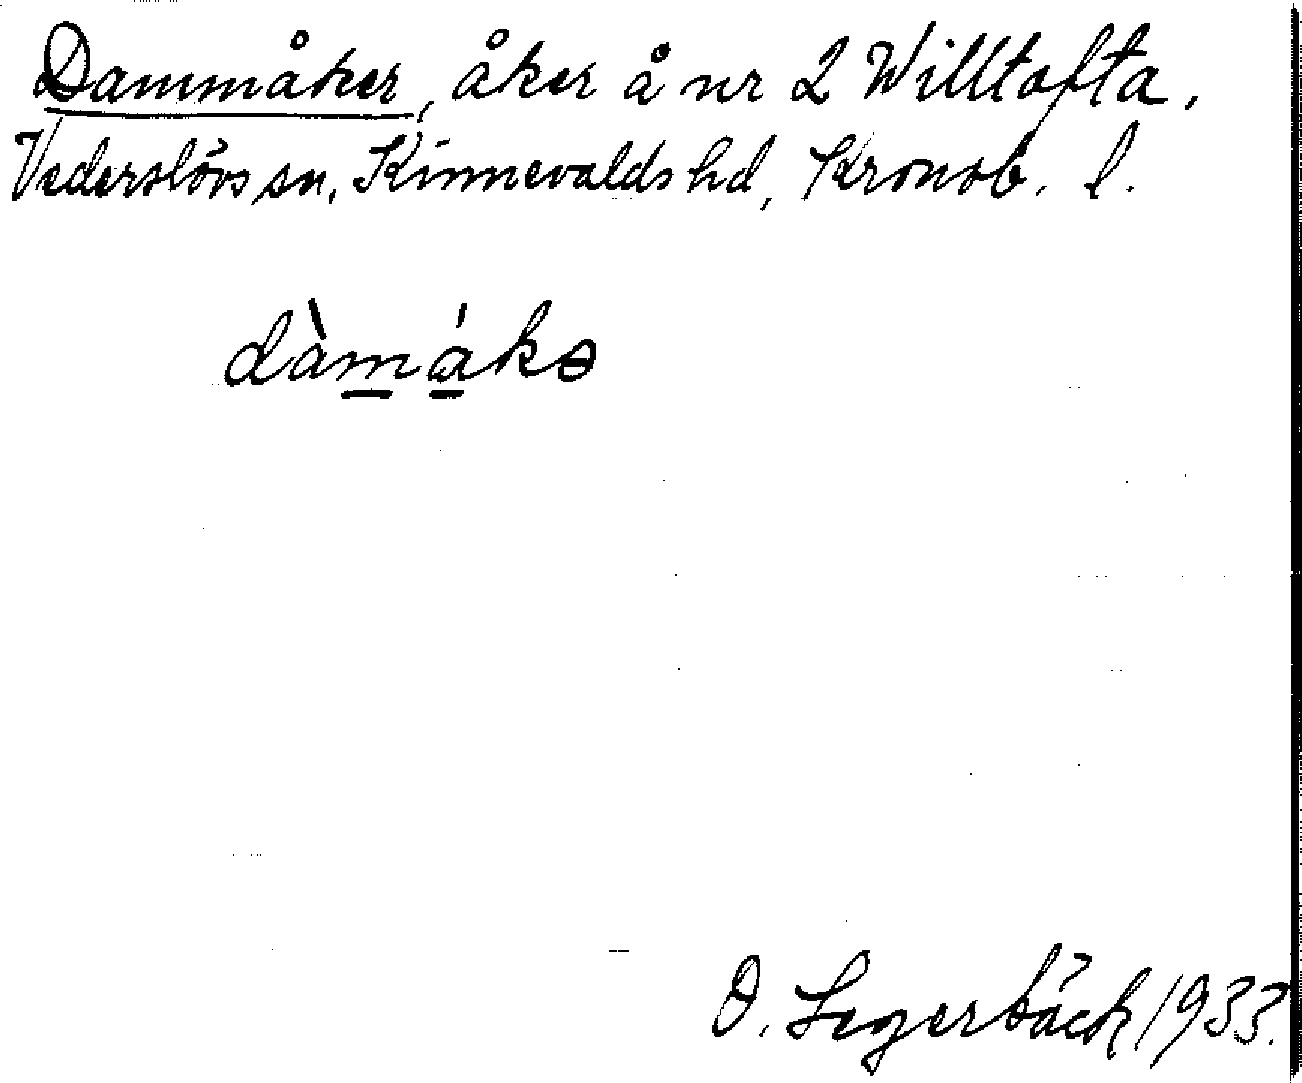 Dammåker, åker å nr 2 Willtofta,
Vederslövs sn, Kinnevalds hd, Kronob. l.
dàmákə
O. Segerbäck 1933.